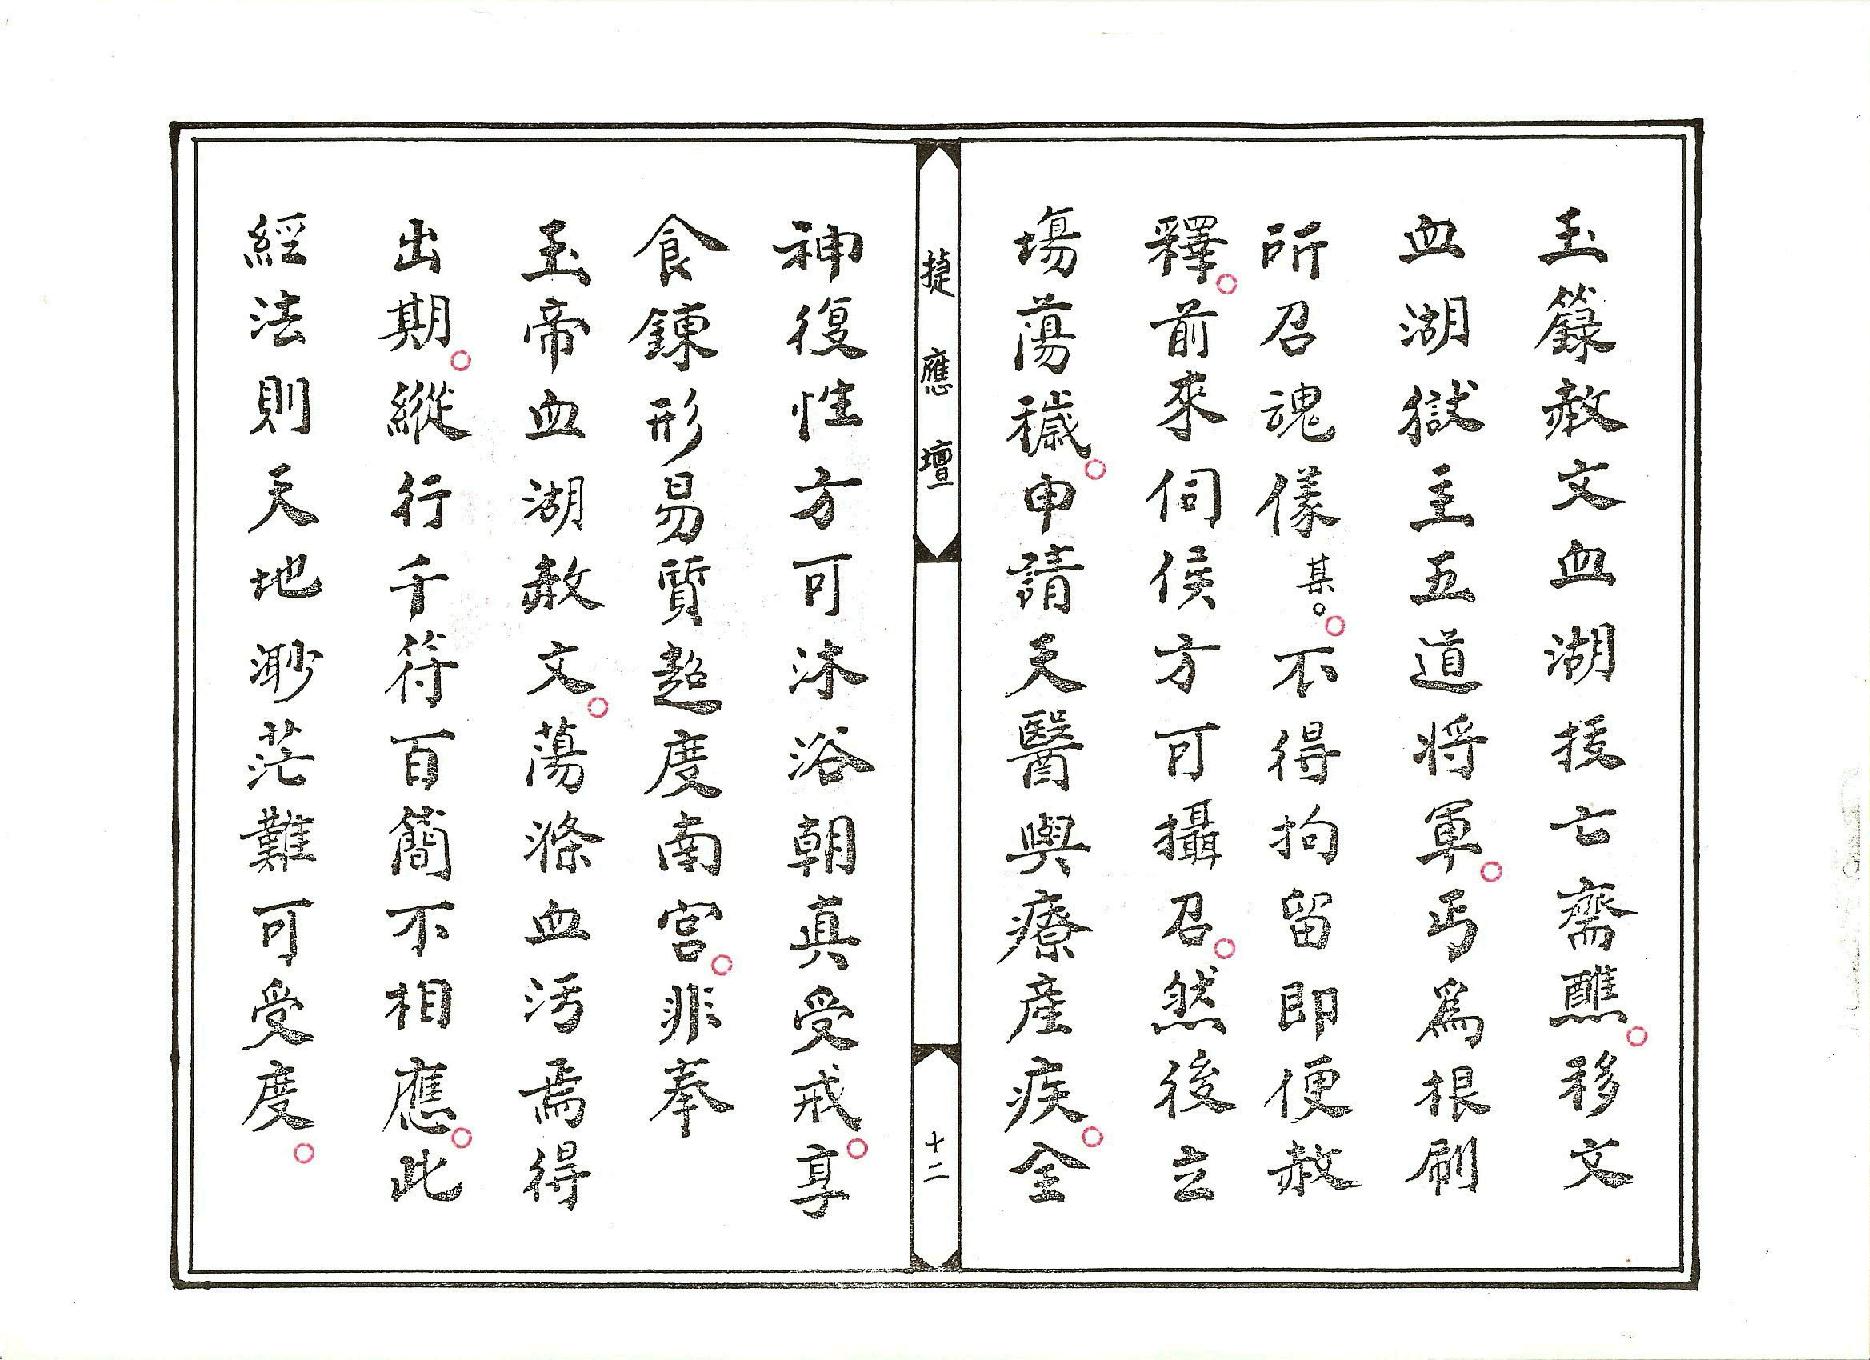 玉籙赦文血湖拔亡齋醮。移文
血湖獄主五道將軍。丐為根刷
所召魂儀某。。不得拘留即便赦
釋。前來伺候方可攝召。然後立
場蕩穢。申請天醫與療產疾。全
捷應壇
十二
神復性方可沐浴朝真受戒。享
食鍊形易質超度南宮。非奉
玉帝血湖赦文。蕩滌血污焉得
出期。縱行千符百簡不相應。此
經法則天地渺茫難可受度。